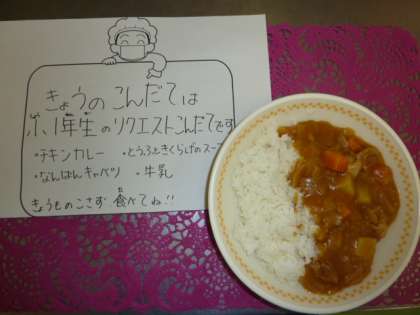 きょうのこんだては
小1年生のリクエストこんだてです
・チキンカレー ・とうふときくらげのスープ
・なんばんキャベツ ・牛乳
きょうものこさず食べてね!!